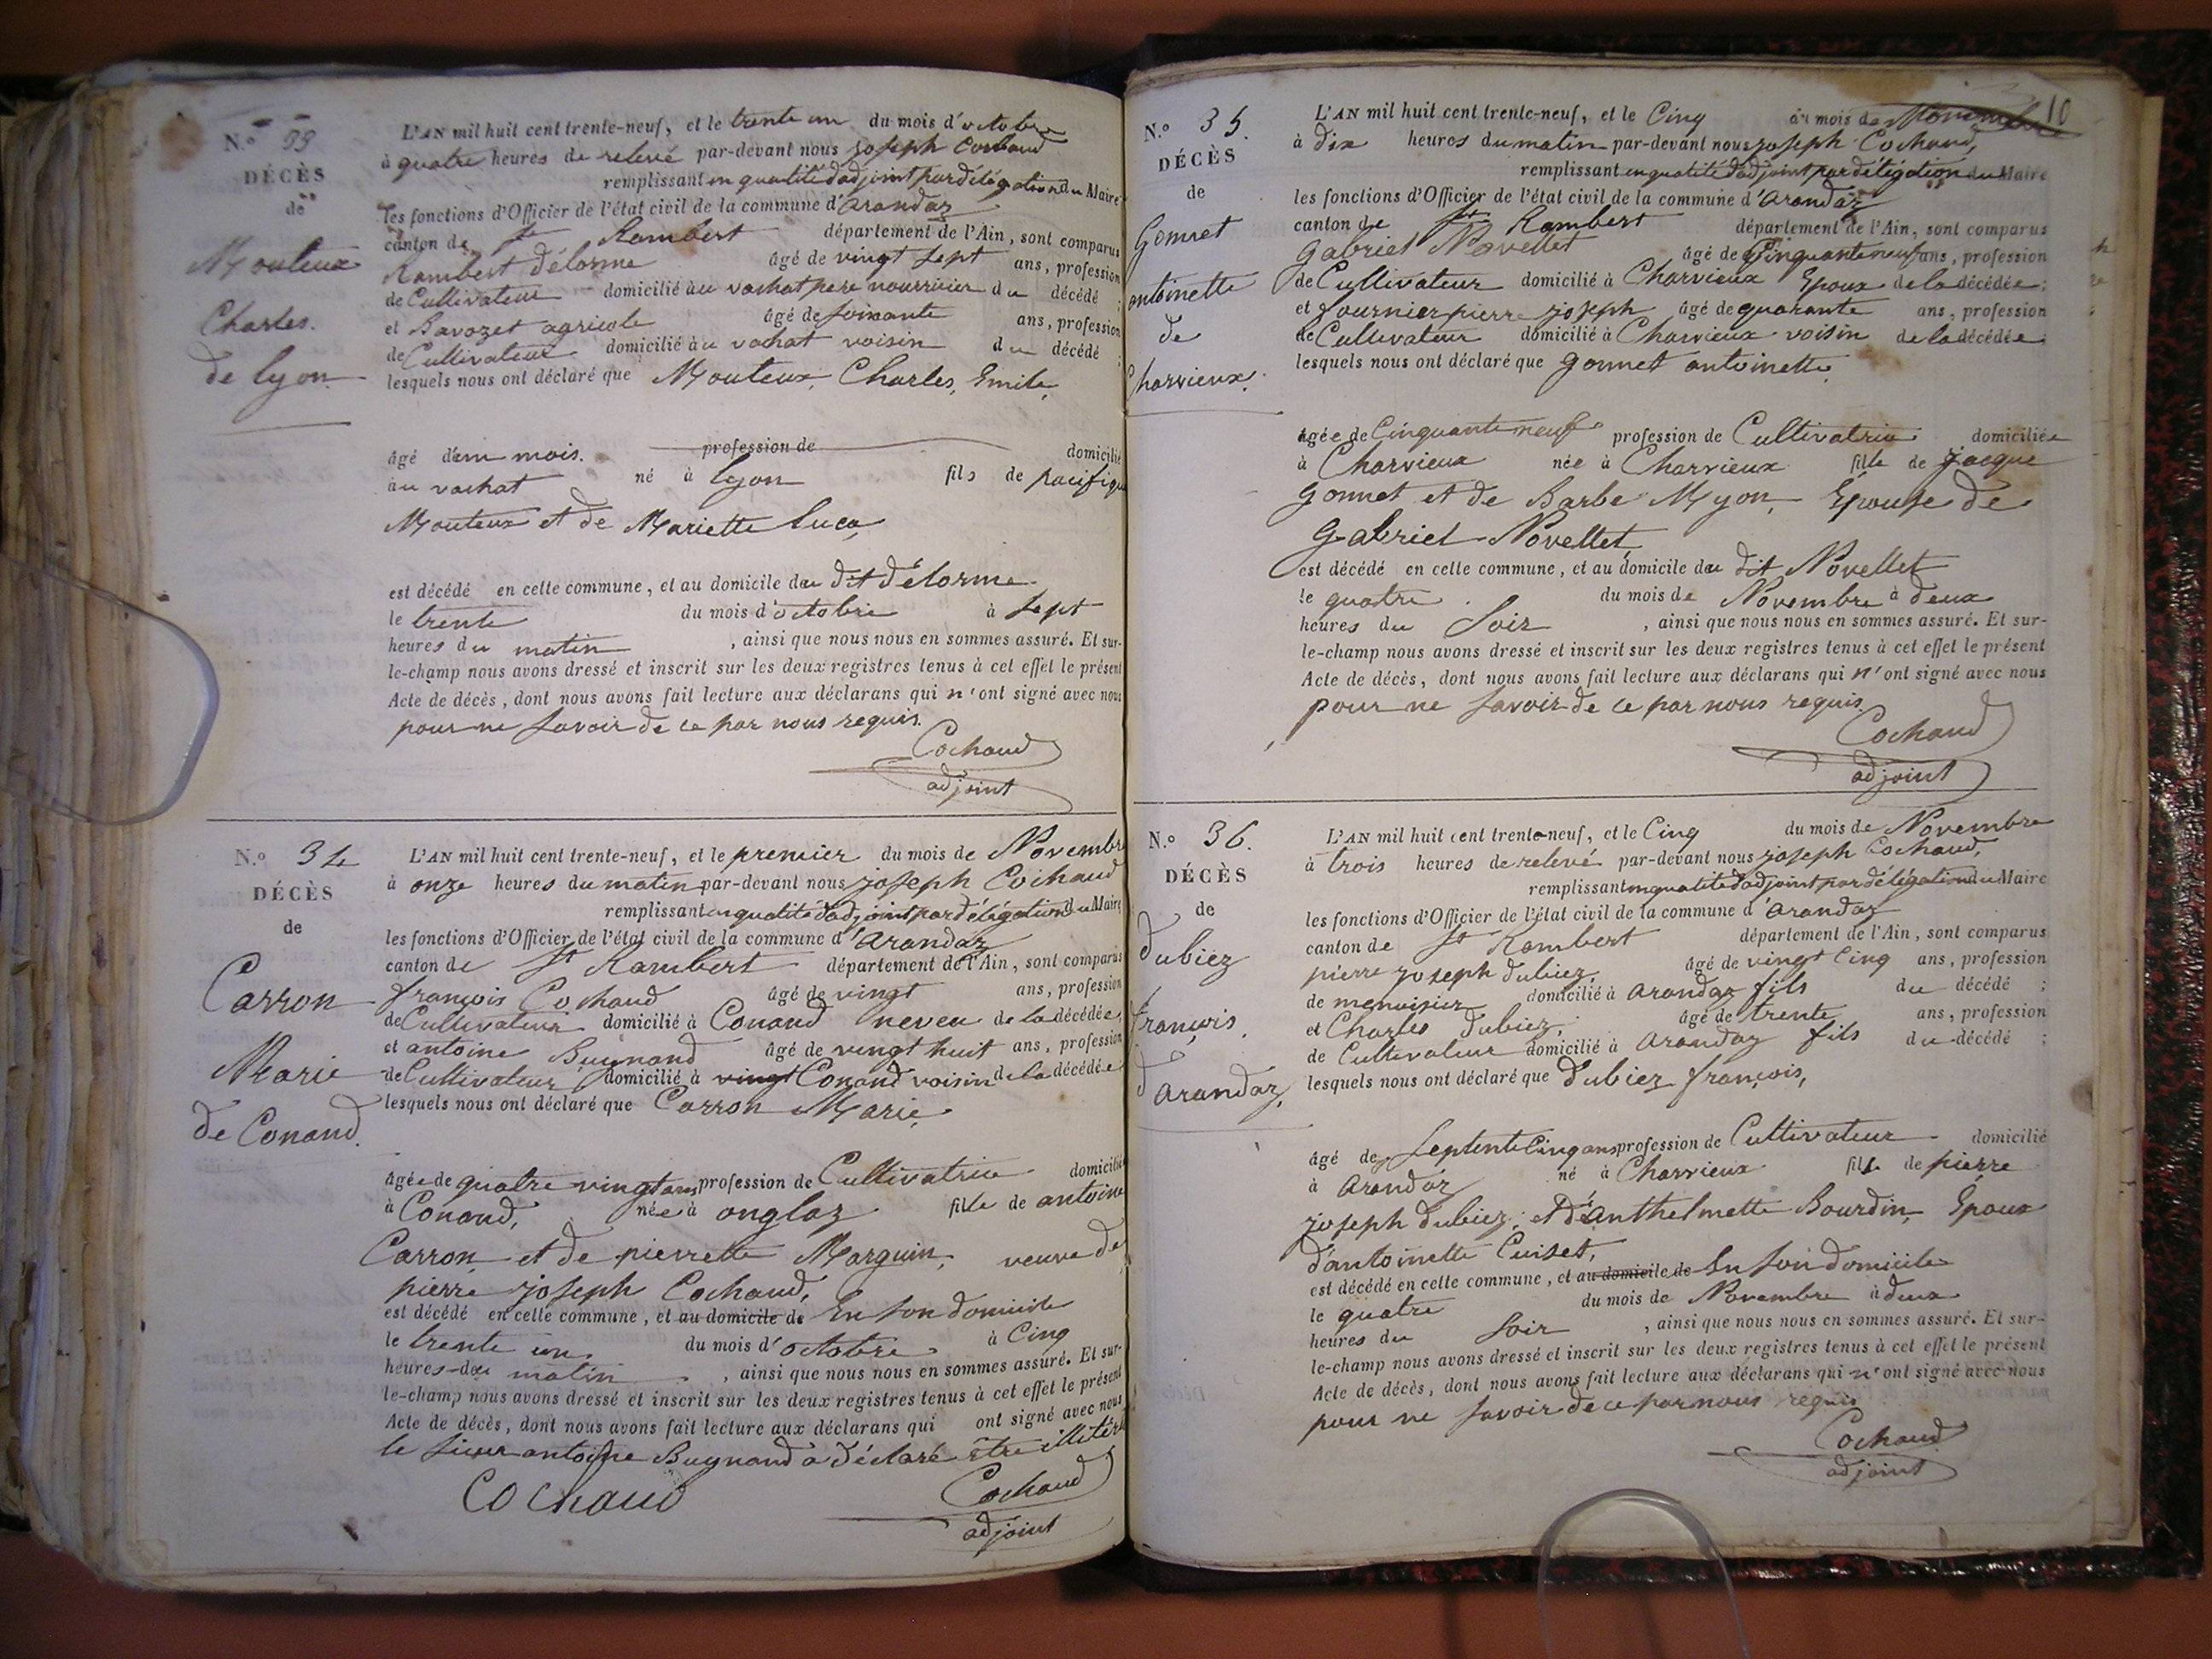 N.o 33
DÉCÈS
de
Mouteux
Charles.
de lyon
L'AN mil huit cent trente-neuf, et le trente un du mois d'octobre
à quatre heures de relevé par-devant nous joseph Cochaud
remplissant en qualité d'adjoint par délégation du Maire
les fonctions d'Officier de l'état civil de la commune d'arandaz
canton de St Rambert département de l'Ain, sont comparus
Rambert délorme âgé de vingt sept ans, profession
de Cultivateur domicilié au vachat pere nourricier du décédé ;
et Savozet agricole âgé de soixante ans, profession
de Cultivateur domicilié au vachat voisin du décédé ;
lesquels nous ont déclaré que Mouteux, Charles, Emile,
âgé d'un mois. profession de domicilié
au vachat né à lyon fils de pacifique
Mouteux et de Mariette luca,
est décédé en cette commune, et au domicile du dit délorme
le trente du mois d'octobre à sept
heures du matin , ainsi que nous nous en sommes assuré. Et sur-
le-champ nous avons dressé et inscrit sur les deux registres tenus à cet effet le présent
Acte de décès, dont nous avons fait lecture aux déclarans qui n'ont signé avec nous
pour ne savoir de ce par nous requis.
Cochaud
adjoint
N.o 34
DÉCÈS
de
Carron
Marie
de Conand.
L'AN mil huit cent trente-neuf, et le premier du mois de Novembre
à onze heures du matin par-devant nous joseph Cochaud
remplissant en qualité d'adjoint par délégation du Maire
les fonctions d'Officier de l'état civil de la commune d'arandaz
canton de St Rambert département de l'Ain, sont comparus
françois Cochaud âgé de vingt ans, profession
de Cultivateur domicilié à Conand neveu de la décédée,
et antoine Bugnand âgé de vingt huit ans, profession
de Cultivateur domicilié à vingt Conand voisin de la décédée
lesquels nous ont déclaré que Carron Marie,
âgée de quatre vingt ans profession de Cultivatrice domicilié
à Conand, née à onglaz fille de antoine
Carron et de pierrette Marguin, veuve de
pierre joseph Cochaud,
est décédé en cette commune, et au domicile de En son domicile
le trente un du mois d'octobre à Cinq
heures du matin , ainsi que nous nous en sommes assuré. Et sur-
le-champ nous avons dressé et inscrit sur les deux registres tenus à cet effet le présent
Acte de décès, dont nous avons fait lecture aux déclarans qui ont signé avec nous
le sieur antoine Bugnand a déclaré être illitéré
Cochaud
Cochaud
adjoint
10
N.o 35.
DÉCÈS
de
Gonnet
antoinette
de
Charvieux.
L'AN mil huit cent trente-neuf, et le Cinq du mois de Novembre
à dix heures du matin par-devant nous joseph Cochaud,
remplissant en qualité d'adjoint par délégation du Maire
les fonctions d'Officier de l'état civil de la commune d'arandaz
canton de St Rambert département de l'Ain, sont comparus
gabriel Novellet âgé de Cinquante neuf ans, profession
de Cultivateur domicilié à Charvieux Epoux de la décédée ;
et fournier pierre joseph âgé de quarante ans, profession
de Cultivateur domicilié à Charvieux voisin de la décédée ;
lesquels nous ont déclaré que gonnet antoinette,
âgée de Cinquante neuf profession de Cultivatrice domiciliée
à Charvieux née à Charvieux fille de Jacque
gonnet et de Barbe Myon, Epouse de
Gabriel Novellet,
est décédé en cette commune, et au domicile du dit Novellet
le quatre du mois de Novembre à deux
heures du Soir , ainsi que nous nous en sommes assuré. Et sur-
le-champ nous avons dressé et inscrit sur les deux registres tenus à cet effet le présent
Acte de décès, dont nous avons fait lecture aux déclarans qui n'ont signé avec nous
pour ne savoir de ce par nous requis
Cochaud
adjoint
N.o 36.
DÉCÈS
de
dubiez
françois.
d'arandaz,
L'AN mil huit cent trente-neuf, et le Cinq du mois de Novembre
à trois heures de relevé par-devant nous joseph Cochaud,
remplissant en qualité d'adjoint par délégation du Maire
les fonctions d'Officier de l'état civil de la commune d'arandaz
canton de St Rambert département de l'Ain, sont comparus
pierre joseph dubiez, âgé de vingt Cinq ans, profession
de menuisier domicilié à arandaz fils du décédé ;
et Charles dubiez, âgé de trente ans, profession
de Cultivateur domicilié à arandaz fils du décédé ;
lesquels nous ont déclaré que dubiez françois,
âgé de Septente Cinq ans profession de Cultivateur domicilié
à arandaz né à Charvieux fils de pierre
joseph dubiez, et d'anthelmette Bourdin, Epoux
d'antoinette Cuiset,
est décédé en cette commune, et au domicile de En son domicile
le quatre du mois de Novembre à deux
heures du Soir , ainsi que nous nous en sommes assuré. Et sur-
le-champ nous avons dressé et inscrit sur les deux registres tenus à cet effet le présent
Acte de décès, dont nous avons fait lecture aux déclarans qui n'ont signé avec nous
pour ne savoir de ce par nous requis
Cochaud
adjoint